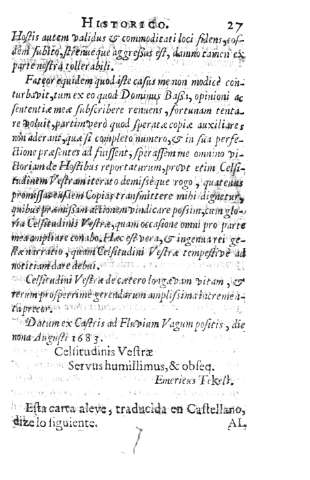 HISTORICO. 27
Hostis autem validus & commoditati loci fidens, eos-
dem subitò, strenueque aggressus est, damno tamen ex
parte nostra tollerabili.
Fateor equidem quod iste casus me non modicè con-
turbavit, tum ex eo quod Dominus Bassis, opinioni ac
sententiæ meæ subscribere renuens, fortunam tenta-
re voluit, partim verò quod speratæ copiæ auxiliares
non aderant, quæ si completo numero, & in sua perfe-
ctione præsentes ad fuissent, sperassem me omnino vi-
ctoriam de Hostibus reportaturum, prout etim Celsi-
tudinem Vestram iterato demisèque rogo, quatenus
promissas eiusdem Copias transmittere mihi dignetur,
quibus præmissam actionem vindicare possim, cum glo-
ria Celsitudinis Vestræ, quam occasione omni pro parte
mea ampliare conabo. Hæc est vera, & ingenua rei ge-
stæ narratio, quam Celsitudini Vestræ tempestivè ad
notitiam dare debui.
Celsitudini Vestræ de cætero longævam vitam, &
rerum prosperrimè gerendarum amplissima increme-
ta precor.
Datum ex Castris ad Fluviam Vagum positis, die
nona Augusti 1683.
Celsitudinis Vestræ
Servus humillimus, & obseq.
Emericus Tekeli.
Esta carta aleve, traducida en Castellano,
dize lo siguiente. AL